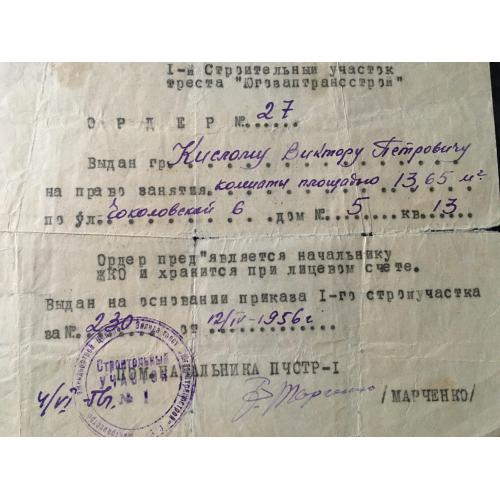 I-й Строительный участок
треста "Югозаптрансстрой"
О Р Д Е Р №. 27
Выдан гр. Кислому Виктору Петровичу
на право занятия комнаты площадью 13,65 м²
по ул. Соколовской 6 дом № 5 кв. 13
Ордер пред"является начальнику
ЖКО и хранится при лицевом счете.
Выдан на основании приказа I-го стройучастка
за № 230 от 12/IV-1956 г
НАЧАЛЬНИКА ПУСТР-I
/МАРЧЕНКО/
Строительный
участок
№ 1